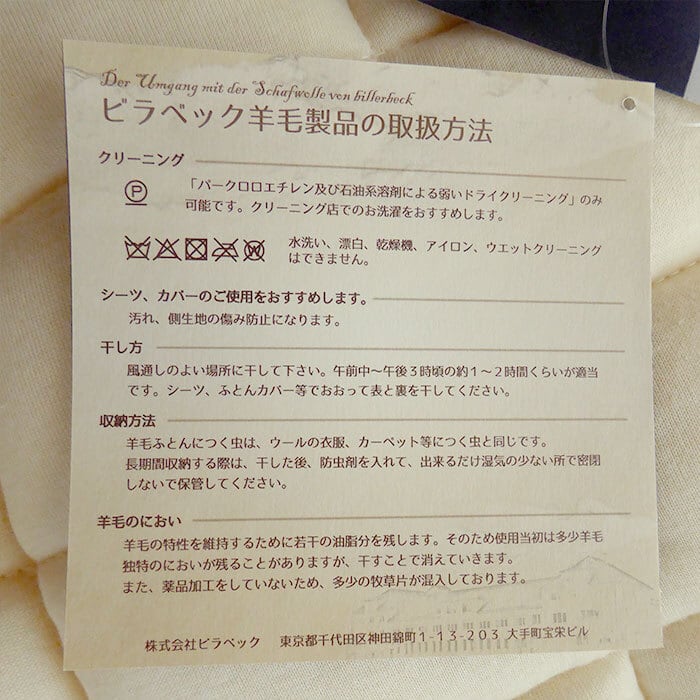 Der Umgang mit der Schafwolle von billerbeck
ビラベック羊毛製品の取扱方法
クリーニング
P
「パークロロエチレン及び石油系溶剤による弱いドライクリーニング」のみ
可能です。クリーニング店でのお洗濯をおすすめします。
W
水洗い、漂白、乾燥機、アイロン、ウエットクリーニング
はできません。
シーツ、カバーのご使用をおすすめします。
汚れ、側生地の傷み防止になります。
干し方
風通しのよい場所に干して下さい。午前中～午後３時頃の約１～２時間くらいが適当
です。シーツ、ふとんカバー等でおおって表と裏を干してください。
収納方法
羊毛ふとんにつく虫は、ウールの衣服、カーペット等につく虫と同じです。
長期間収納する際は、干した後、防虫剤を入れて、出来るだけ湿気の少ない所で密閉
しないで保管してください。
羊毛のにおい
羊毛の特性を維持するために若干の油脂分を残します。そのため使用当初は多少羊毛
独特のにおいが残ることがありますが、干すことで消えていきます。
また、薬品加工をしていないため、多少の牧草片が混入しております。
株式会社ビラベック 東京都千代田区神田錦町１-１３-２０３ 大手町宝栄ビル